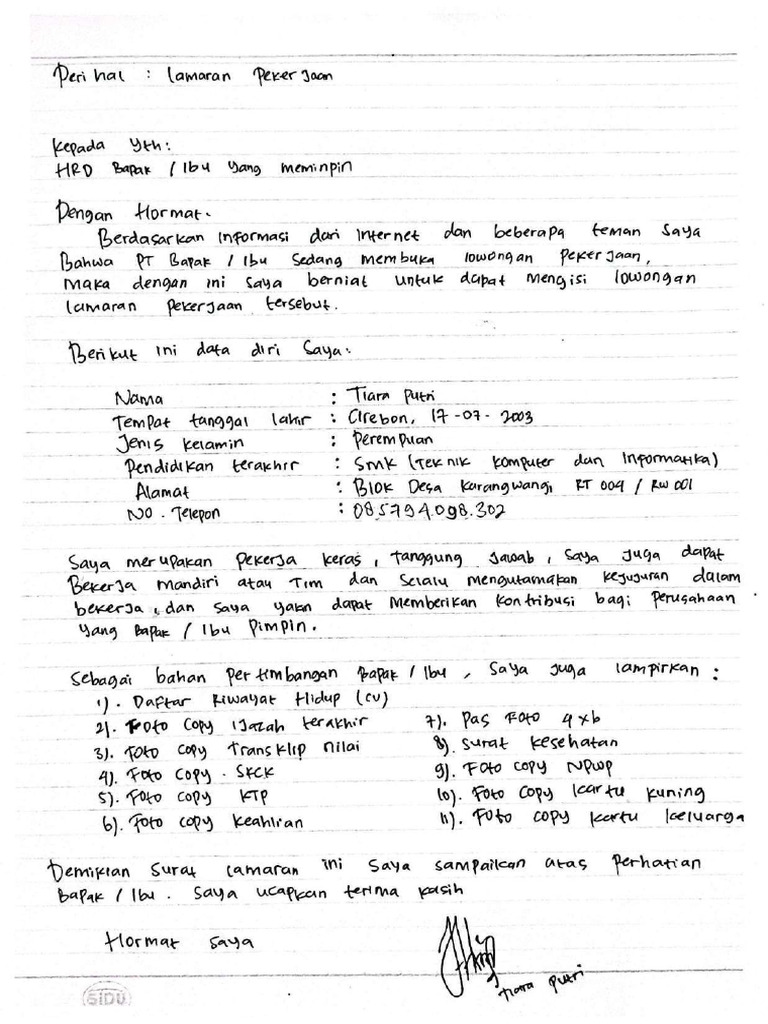 Perihal : lamaran Pekerjaan
Kepada Yth:
HRD Bapak / Ibu Yang meminpin
Dengan Hormat.
Berdasarkan Informasi dari Internet dan beberapa teman Saya
Bahwa PT Bapak / Ibu Sedang membuka lowongan Pekerjaan,
Maka dengan ini Saya berniat untuk dapat Mengisi lowongan
lamaran Pekerjaan tersebut.
Berikut ini data diri Saya:
Nama : Tiara Putri
Tempat tanggal lahir : Cirebon, 17-07-2003
Jenis Kelamin : Perempuan
Pendidikan terakhir : SMK (Teknik Komputer dan Informatika)
Alamat : Blok Desa Karangwangi, RT 004 / RW 001
No. Telepon : 085794.098.302
Saya merupakan Pekerja keras, Tanggung Jawab, Saya Juga dapat
Bekerja Mandiri atau Tim dan Selalu mengutamakan kejujuran dalam
bekerja, dan Saya yakn dapat Memberikan Kontribusi bagi Perusahaan
Yang Bapak / Ibu Pimpin.
Sebagai bahan Pertimbangan Bapak / Ibu, Saya Juga lampirkan :
1). Daftar Riwayat Hidup (CV)
2). Foto Copy Ijazah terakhir
3). Foto Copy Transklip nilai
4). Foto Copy. SKCK
5). Foto Copy KTP
6). Foto Copy Keahlian
7). Pas Foto 4x6
8). Surat Kesehatan
9). Foto Copy NPWP
10). Foto Copy Kartu Kuning
11). Foto Copy Kartu Keluarga
Demikian Surat lamaran ini Saya Sampaikan atas Perhatian
Bapak / Ibu. Saya ucapkan terima kasih
Hormat saya
Tiara Putri
SIDU